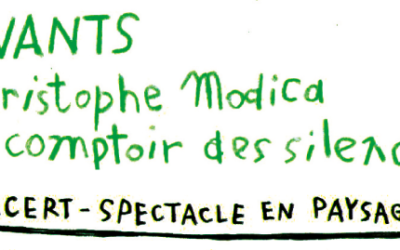 VANTS
ristophe Modica
comptoir des silenc
CERT-SPECTACLE EN PAYSAG